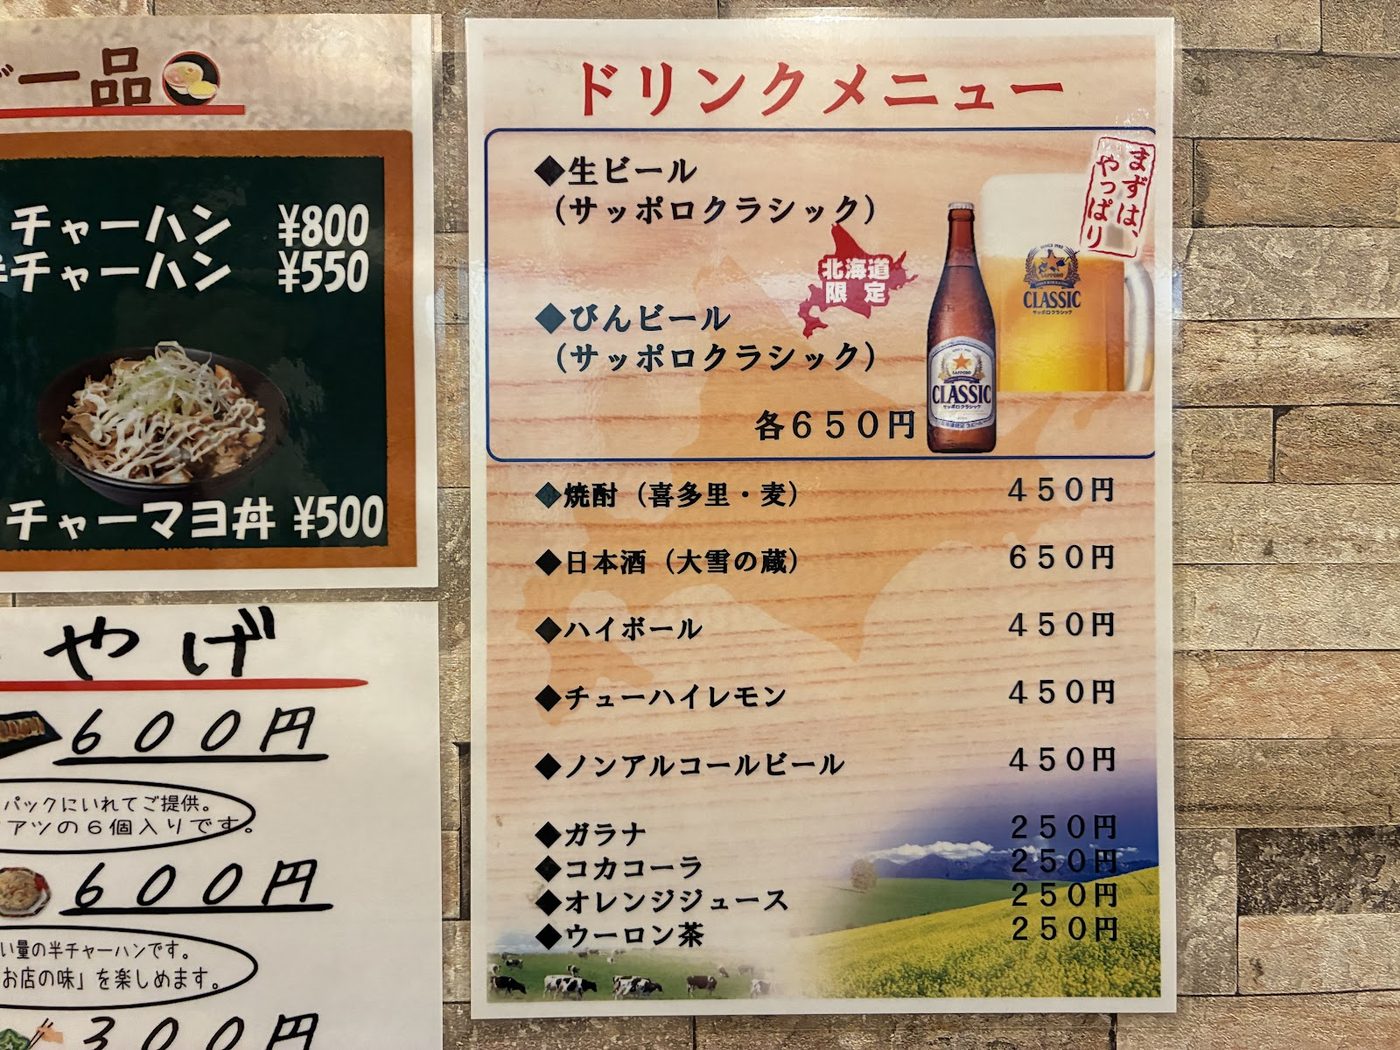 一品
チャーハン ¥800
チャーハン ¥550
チャーマヨ丼 ¥500
やげ
600円
パックにいれてご提供。
アツの6個入りです。
600円
い量の半チャーハンです。
お店の味」を楽しめます。
300円
ドリンクメニュー
まずは、
やっぱり
◆生ビール
（サッポロクラシック）
北海道
限定
◆びんビール
（サッポロクラシック）
各650円
SAPPORO
CLASSIC
サッポロクラシック
SAPPORO
CLASSIC
サッポロクラシック
◆焼酎（喜多里・麦） 450円
◆日本酒（大雪の蔵） 650円
◆ハイボール 450円
◆チューハイレモン 450円
◆ノンアルコールビール 450円
◆ガラナ 250円
◆コカコーラ 250円
◆オレンジジュース 250円
◆ウーロン茶 250円